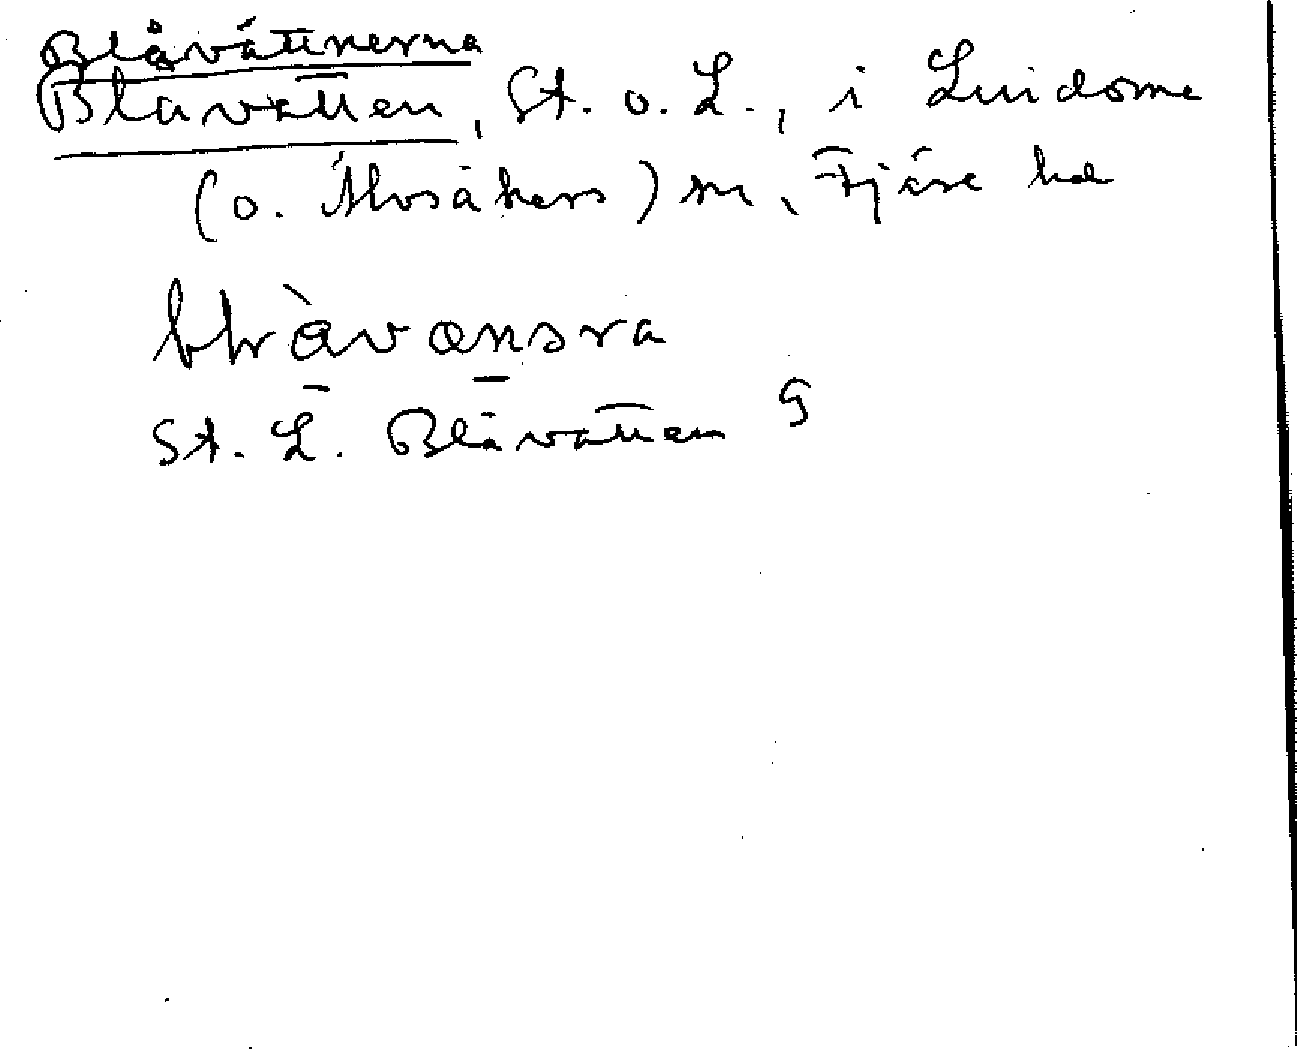 Blåvättnerna
Blåvatten, St. o. L., i Lindome
(o. Älvsåkers) sn, Fjäre hd
St. L. Blåvatten G